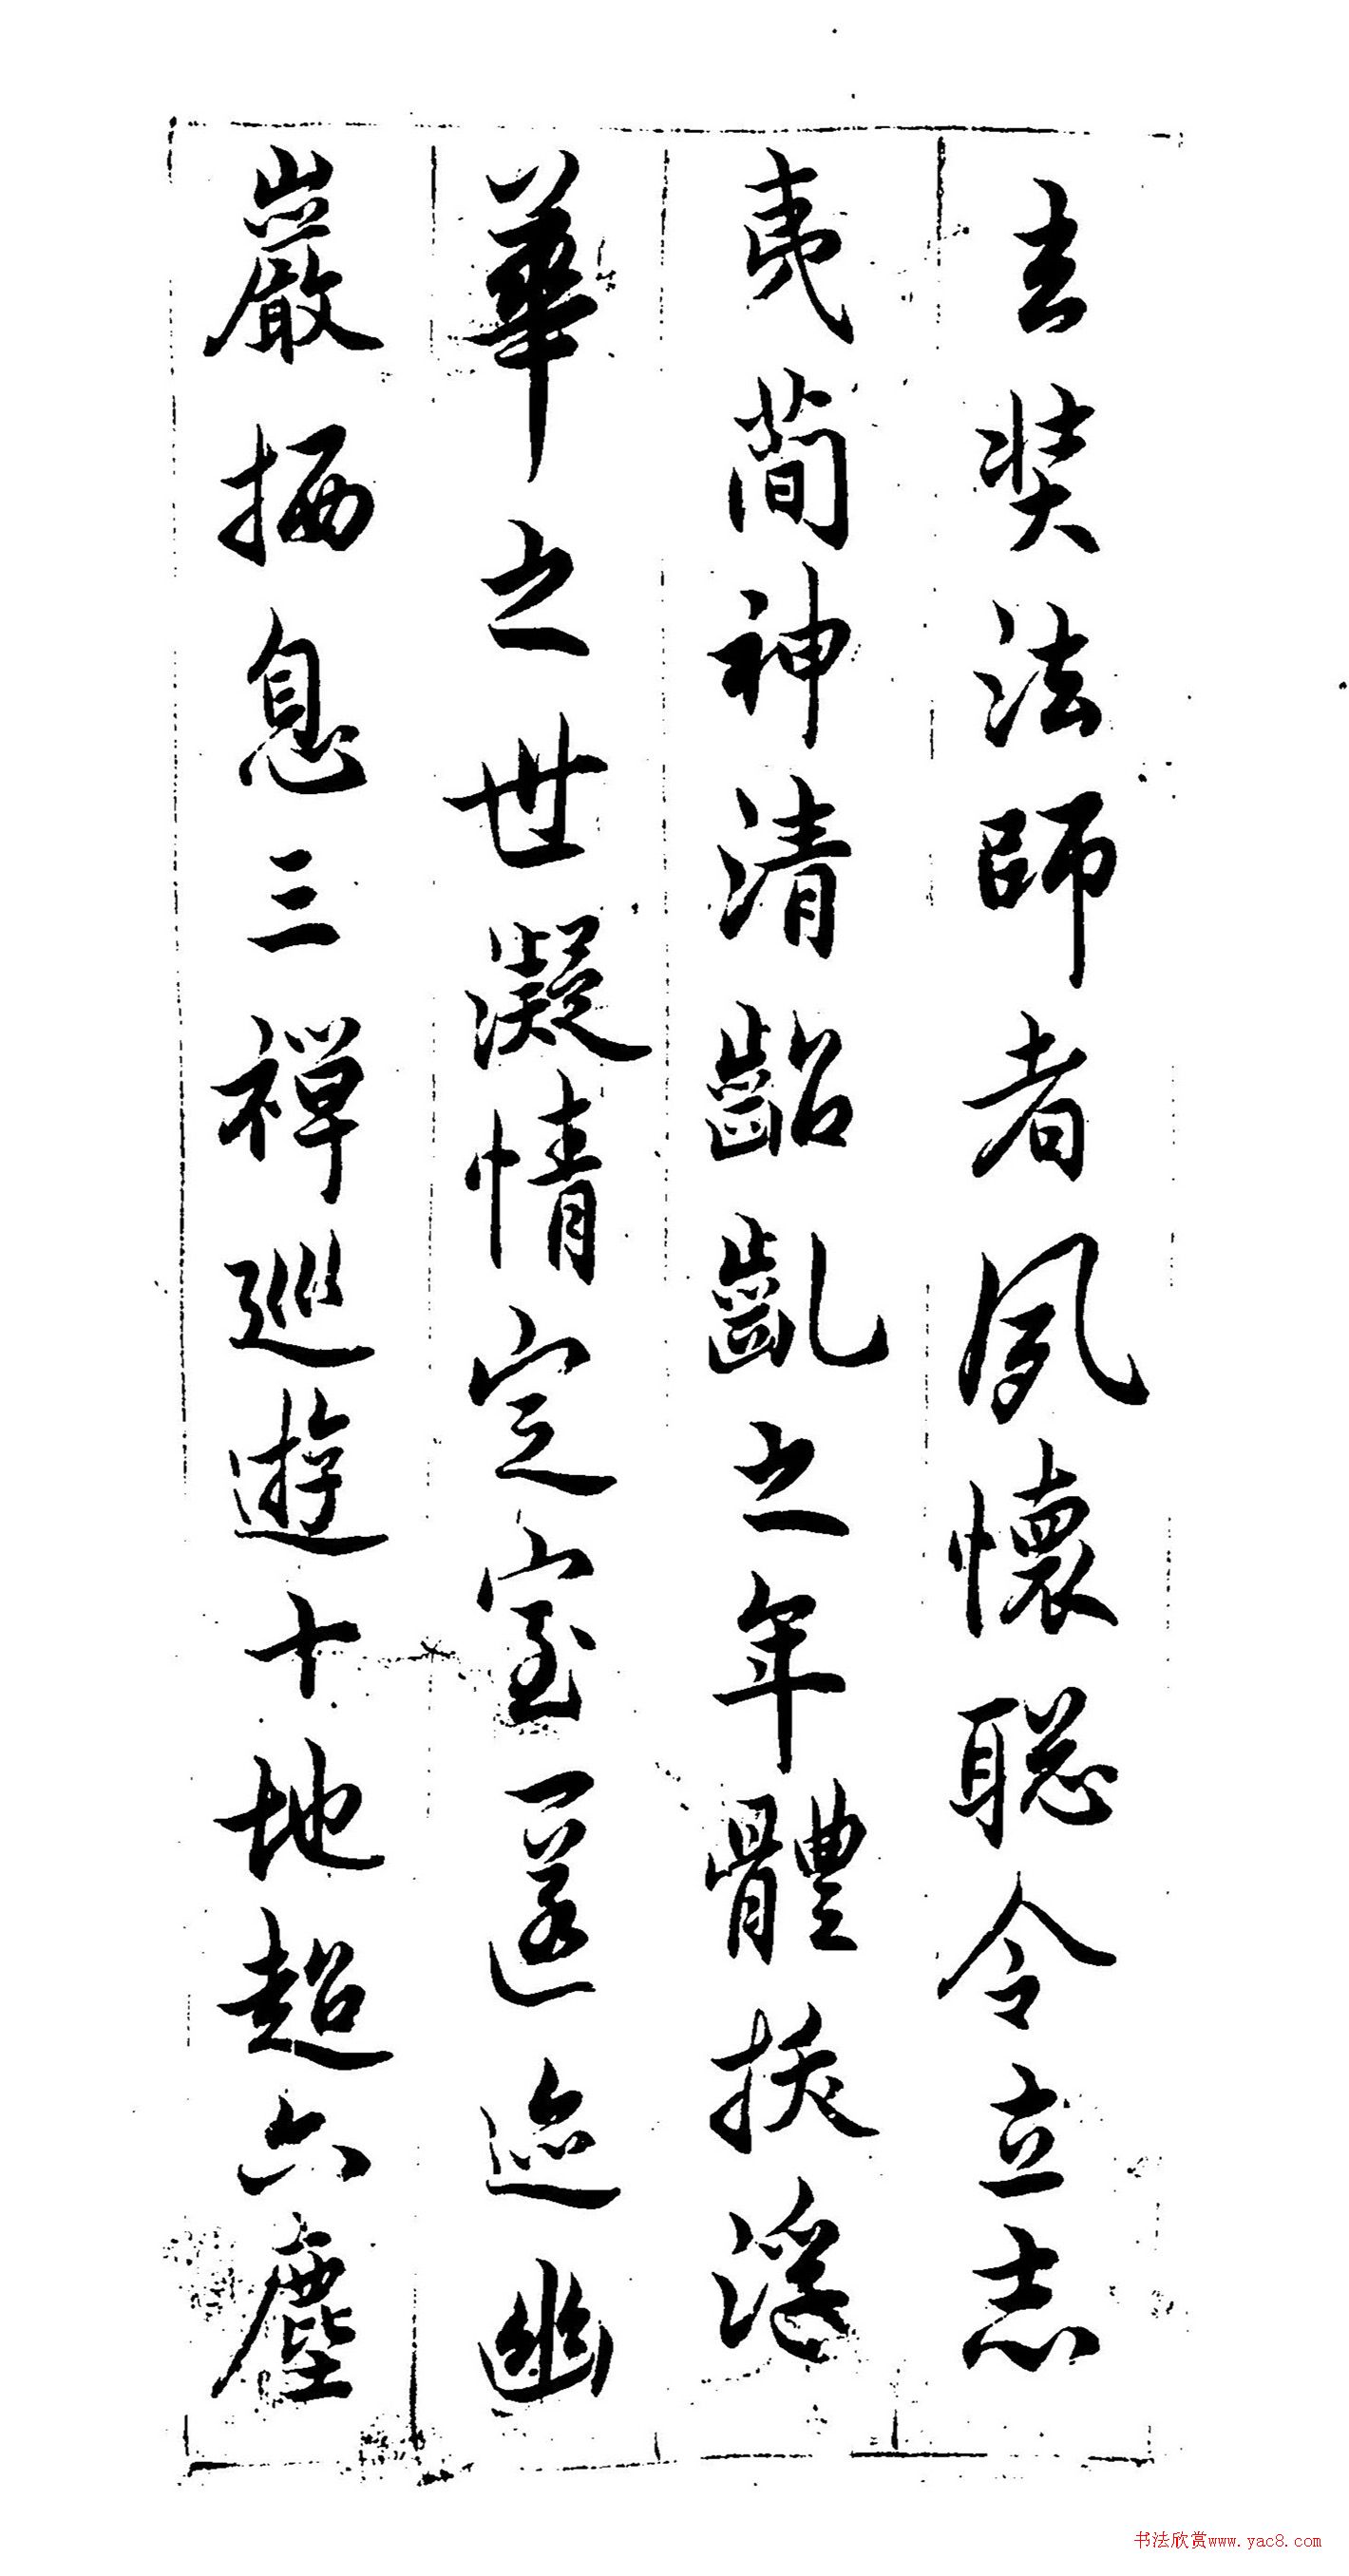 玄奘法師者夙懷聰令立志
夷簡神清齠齔之年體拔浮
華之世凝情定室匿迹幽
巖栖息三禪巡遊十地超六塵
书法欣赏www.yac8.com